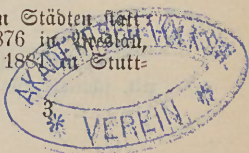 n Städten ſtatt:
876 in Breslau,
1881 in Stutt=
3
VEREIN